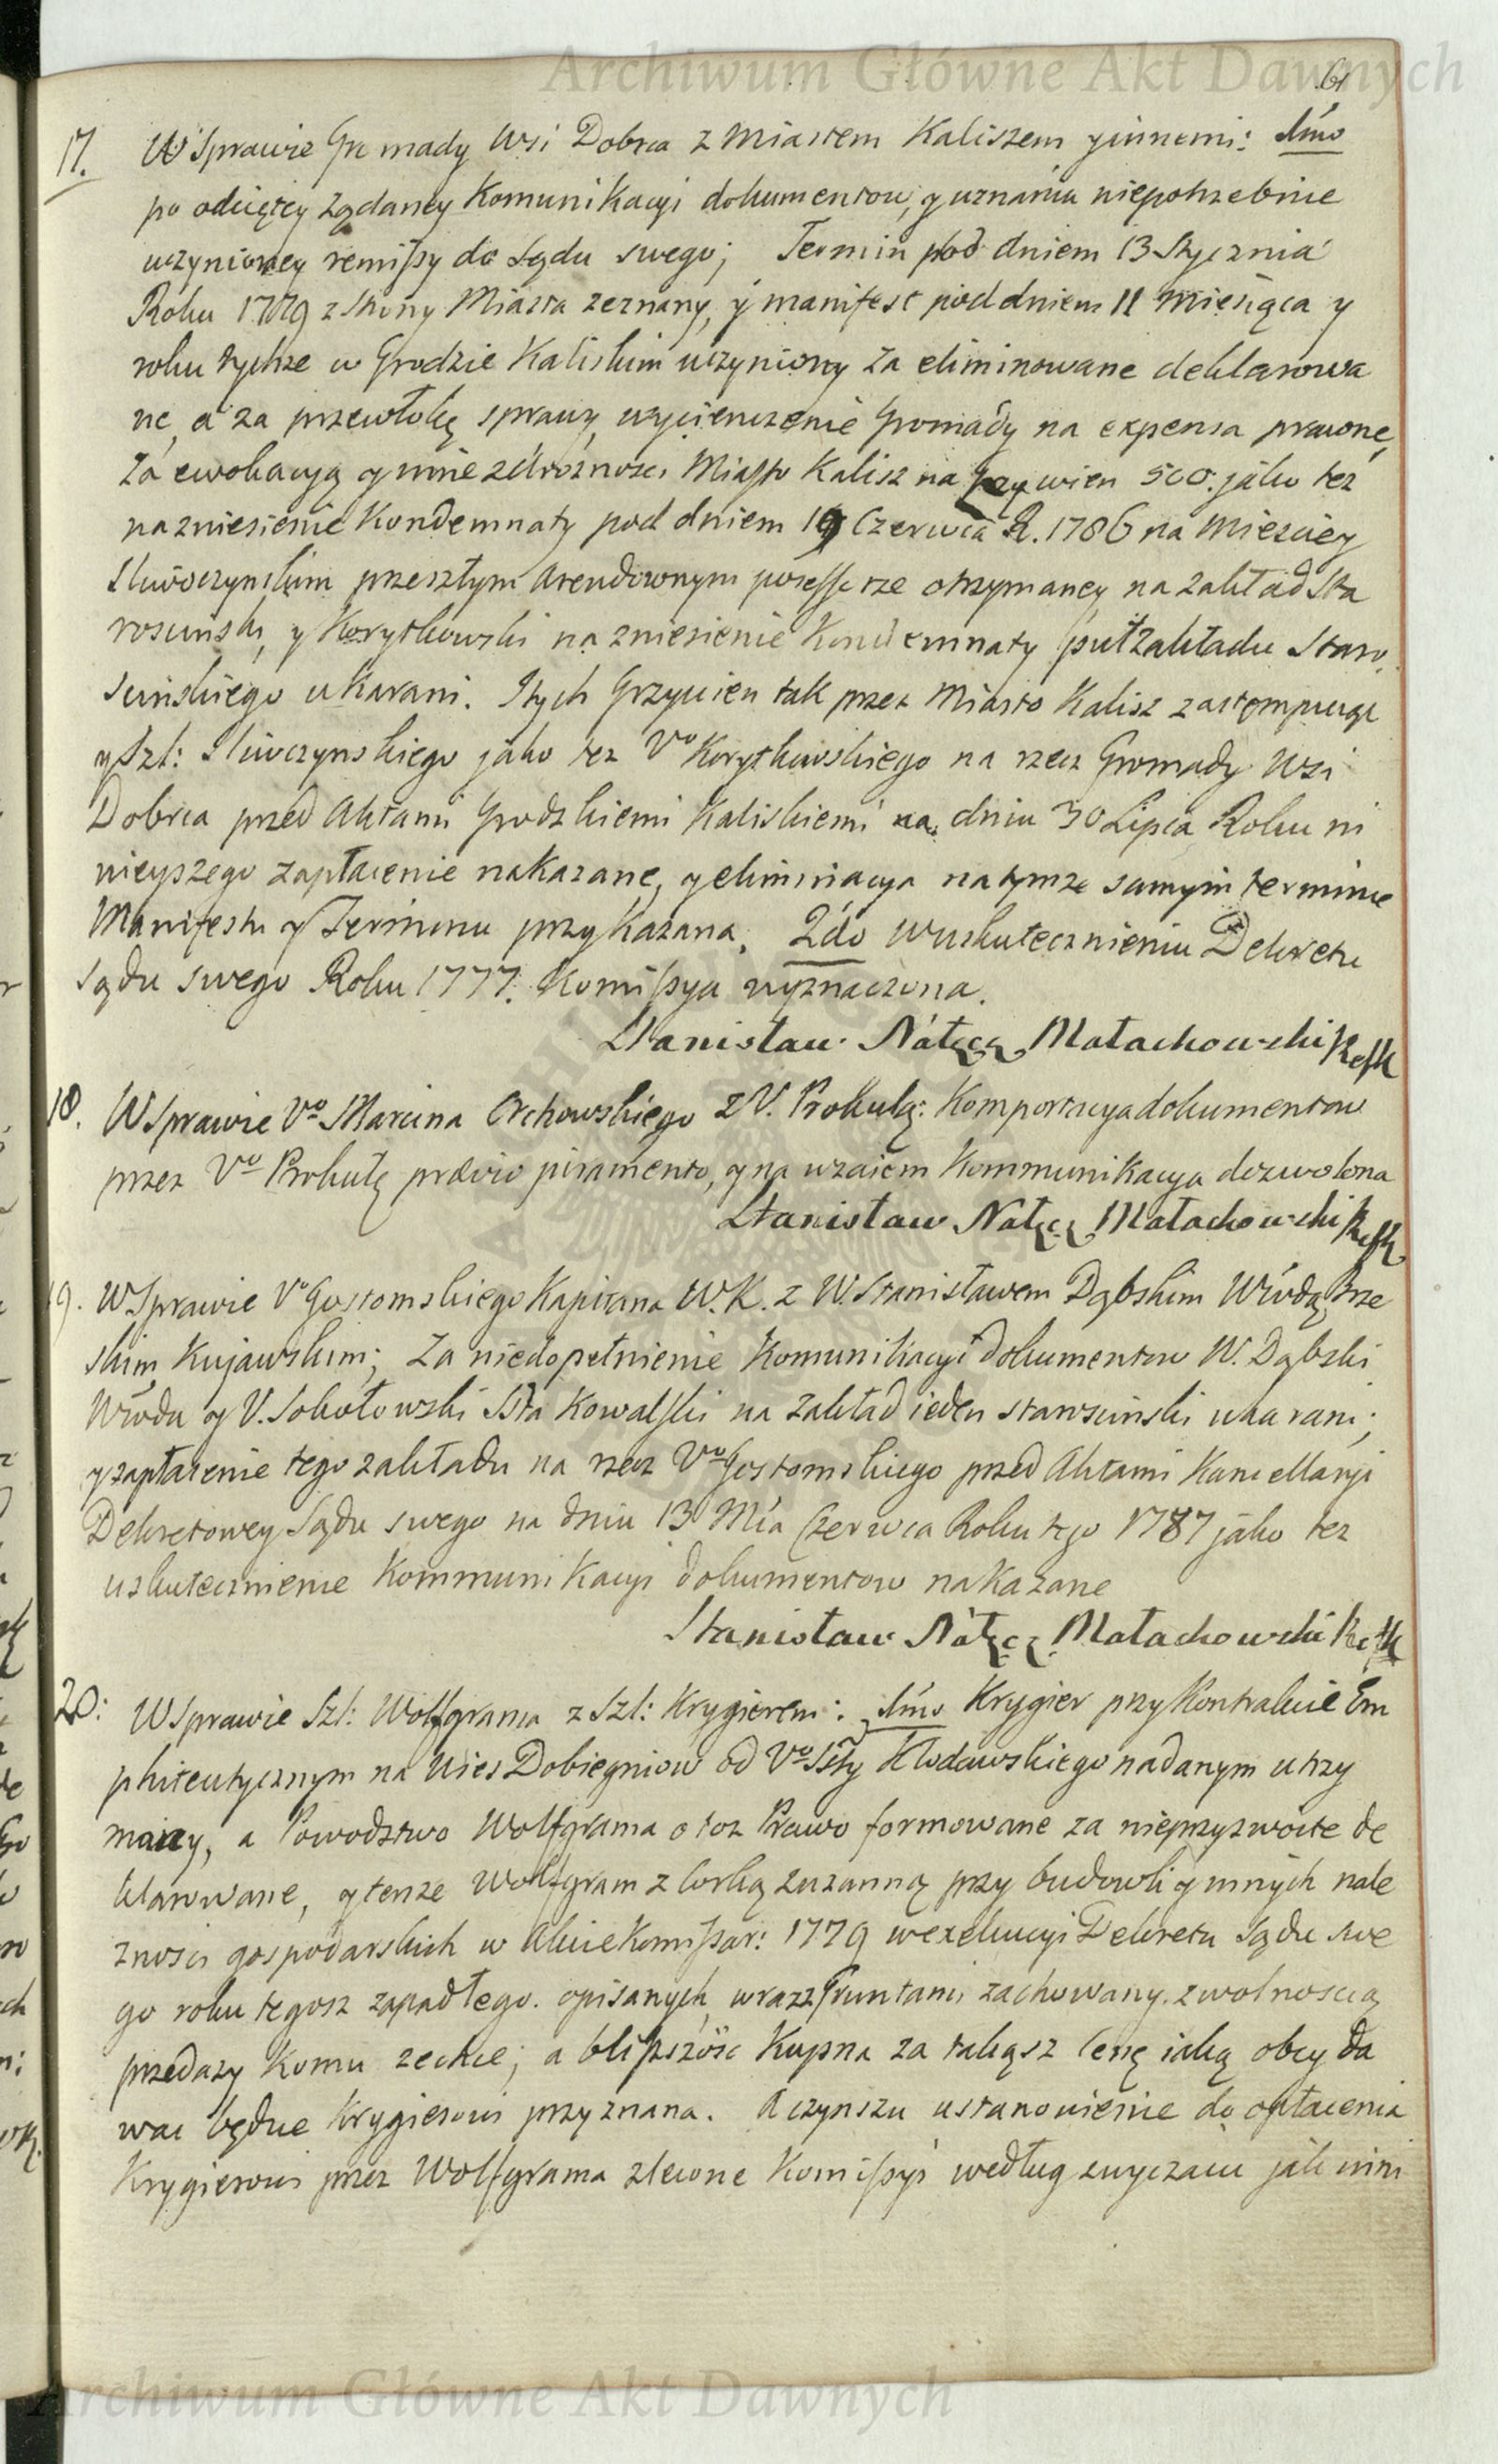 Archiwum Główne Akt Dawnych
61
17. W Sprawie Gromady Wsi Dobrca z Miastem Kaliszem y innemi: 1mo
po odciętey żądaney Komunikacyi dokumentow, y uznaniu niepotrzebnie
uczynioney remissy do Sądu swego; Termin pod dniem 13 Stycznia
Roku 1779 z Strony Miasta zeznany, y manifest pod dniem 11 Miesiąca y
roku tychże w Grodzie Kaliskim uczyniony za eliminowane deklarowa
ne, a za przewłokę sprawy, wycieńczenie Gromady na expensa prawne,
za ewokacyą y inne zdrożności Miasto Kalisz na Grzywien 500. jako też
na zniesienie Kondemnaty pod dniem 19 Czerwca R. 1786 na
Sliwczynskim przeszłym Arendownym posessorze otrzymaney na zakład Sta
rosciński, y Korytkowski na zniesienie Kondemnaty puł Zakładu Staro
scińskiego ukarani. I tych Grzywien tak przez Miasto Kalisz
y Szl: Sliwczynskiego jako też Vo Korytkowskiego na rzecz Gromady Wsi
Dobrca przed Aktami Grodzkiemi Kaliskiemi na dniu 30 Lipca Roku ni
nieyszego zapłacenie nakazane, y eliminacya na tymże samym terminie
Manifestu y Terminu przykazana. 2do W uskutecznieniu Dekretu
Sądu swego Roku 1777. Komissya wyznaczona.
Stanisław Nałęcz Małachowski
18. W Sprawie Vo Marcina Orchowskiego z V. Prokulą: Komportacya dokumentow
przez Vo Prokulę prævio juramento, y na wzaiem Kommunikacya dozwolona
Stanisław Nałęcz Małachowski
19. W Sprawie Vo Gostomskiego Kapitana W.K. z W. Stanisławem Dąbskim Wwdą Brze
skim Kujawskim; Za niedopełnienie Komunikacyi dokumentow W. Dąbski
Wwda y V. Sokołowski Stta Kowalski na zakład ieden starosciński ukarani;
y zapłacenie tego zakładu na rzecz Vo Gostomskiego przed Aktami Kancellaryi
Dekretowey Sądu swego na dniu 13 Mca Czerwca Roku tego 1787 jako też
uskutecznienie Kommunikacyi dokumentow nakazane
Stanisław Nałęcz Małachowski
20: W Sprawie Szl: Wolfgrama z Szl: Krygierem: 1mo Krygier przy Kontrakcie Em
phiteutycznym na Wieś Dobiegniow od Vo Stty Kłodawskiego nadanym utrzy
many, a Powodztwo Wolfgrama o toż Prawo formowane za nieprzyzwoite de
klarowane, y tenże Wolfgram z Corką Zuzanną przy budowli y innych nale
żności gospodarskich w Akcie Komissar: 1779 w exekucyi Dekretu Sądu swe
go roku tegoż zapadłego. opisanych, wraz z Gruntami zachowany. z wolnoscią
przedaży komu zechce; a bliższość Kupna za takąsz Cenę iaką obcy da
wać będzie Krygierowi przyznana. A czynszu ustanowienie do opłacenia
Krygierowi przez Wolfgrama zlecone Komissyi według zwyczaiu jak inni
Archiwum Główne Akt Dawnych